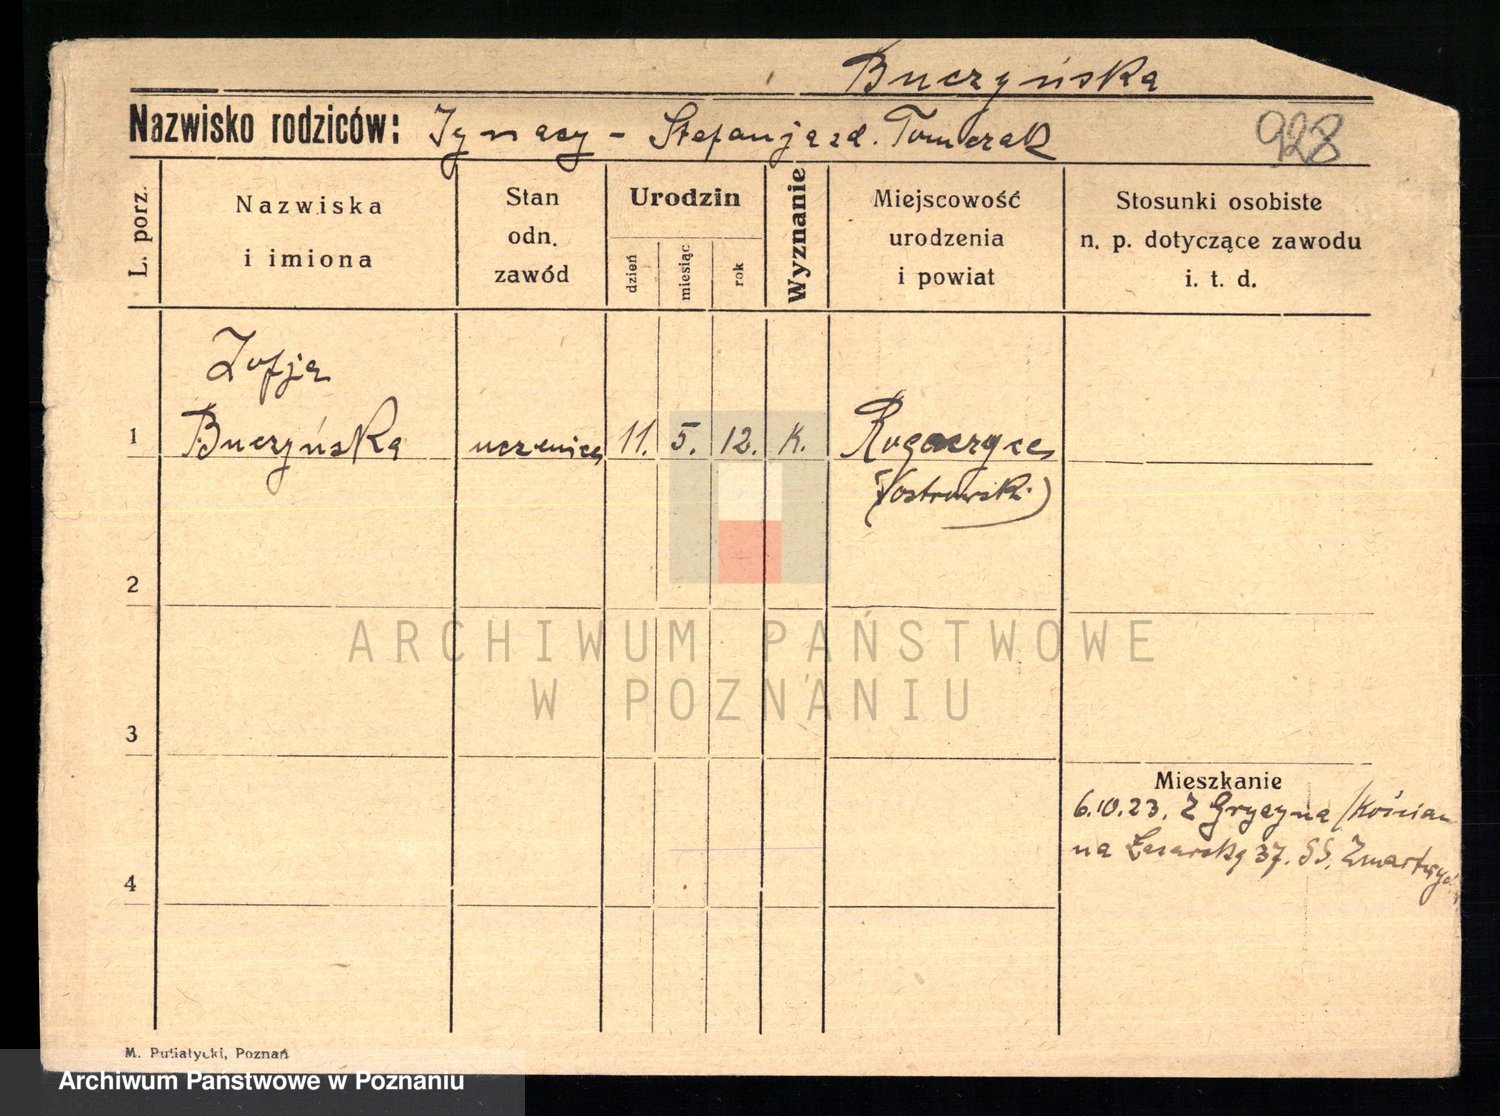 Buczyńska
Nazwisko rodziców: Ignacy - Stefanja zd. Tomczak
928
L. porz.
Nazwiska
i imiona
Stan
odn.
zawód
Urodzin
dzień
miesiąc
rok
Wyznanie
Miejscowość
urodzenia
i powiat
Stosunki osobiste
n. p. dotyczące zawodu
i. t. d.
Zofja
1 Buczyńska uczenica 11. 5. 12. K.
2
3
4
Mieszkanie
6.10.23. Z Gryzyna /Kościan
na Łazarską 37. SS. Zmartwych
ARCHIWUM PAŃSTWOWE
W POZNANIU
M. Putiatycki, Poznań
Archiwum Państwowe w Poznaniu